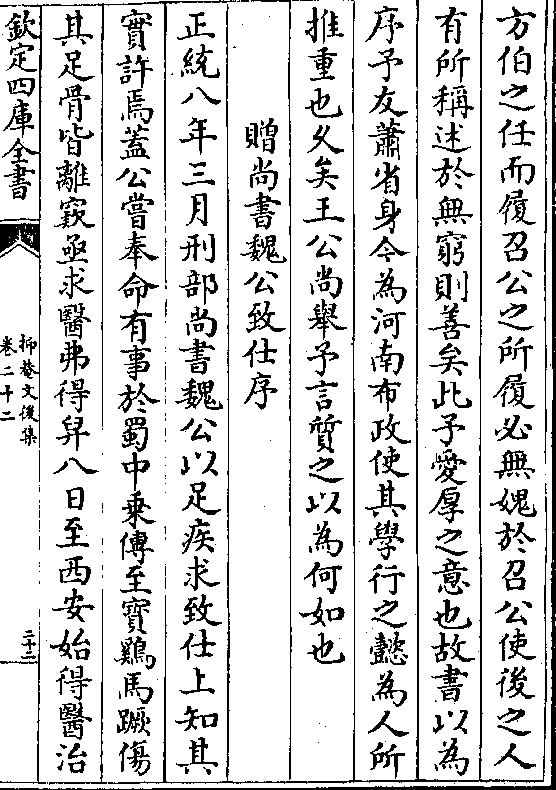 方伯之任而履召公之所履必無媿於召公使後之人
有所稱述於無窮則善矣此予愛厚之意也故書以為
序予友蕭省身今為河南布政使其學行之懿為人所
推重也久矣王公尚舉予言質之以為何如也
贈尚書魏公致仕序
正統八年三月刑部尚書魏公以足疾求致仕上知其
實許焉蓋公嘗奉命有事於蜀中乗傳至寶鷄馬蹶傷
其足骨皆離竅亟求醫弗得舁八日至西安始得醫治
欽定四庫全書
抑菴文後集
卷二十二
二十二